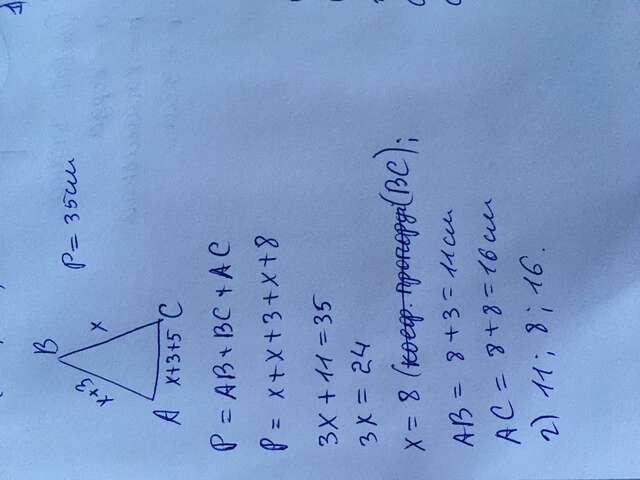 P = 35см
B
x+3
x
A
x+3+5
C
P = AB + BC + AC
P = x + x + 3 + x + 8
3x + 11 = 35
3x = 24
x = 8 (коэф. пропорц (BC);
AB = 8 + 3 = 11см
AC = 8 + 8 = 16см
2) 11; 8; 16.